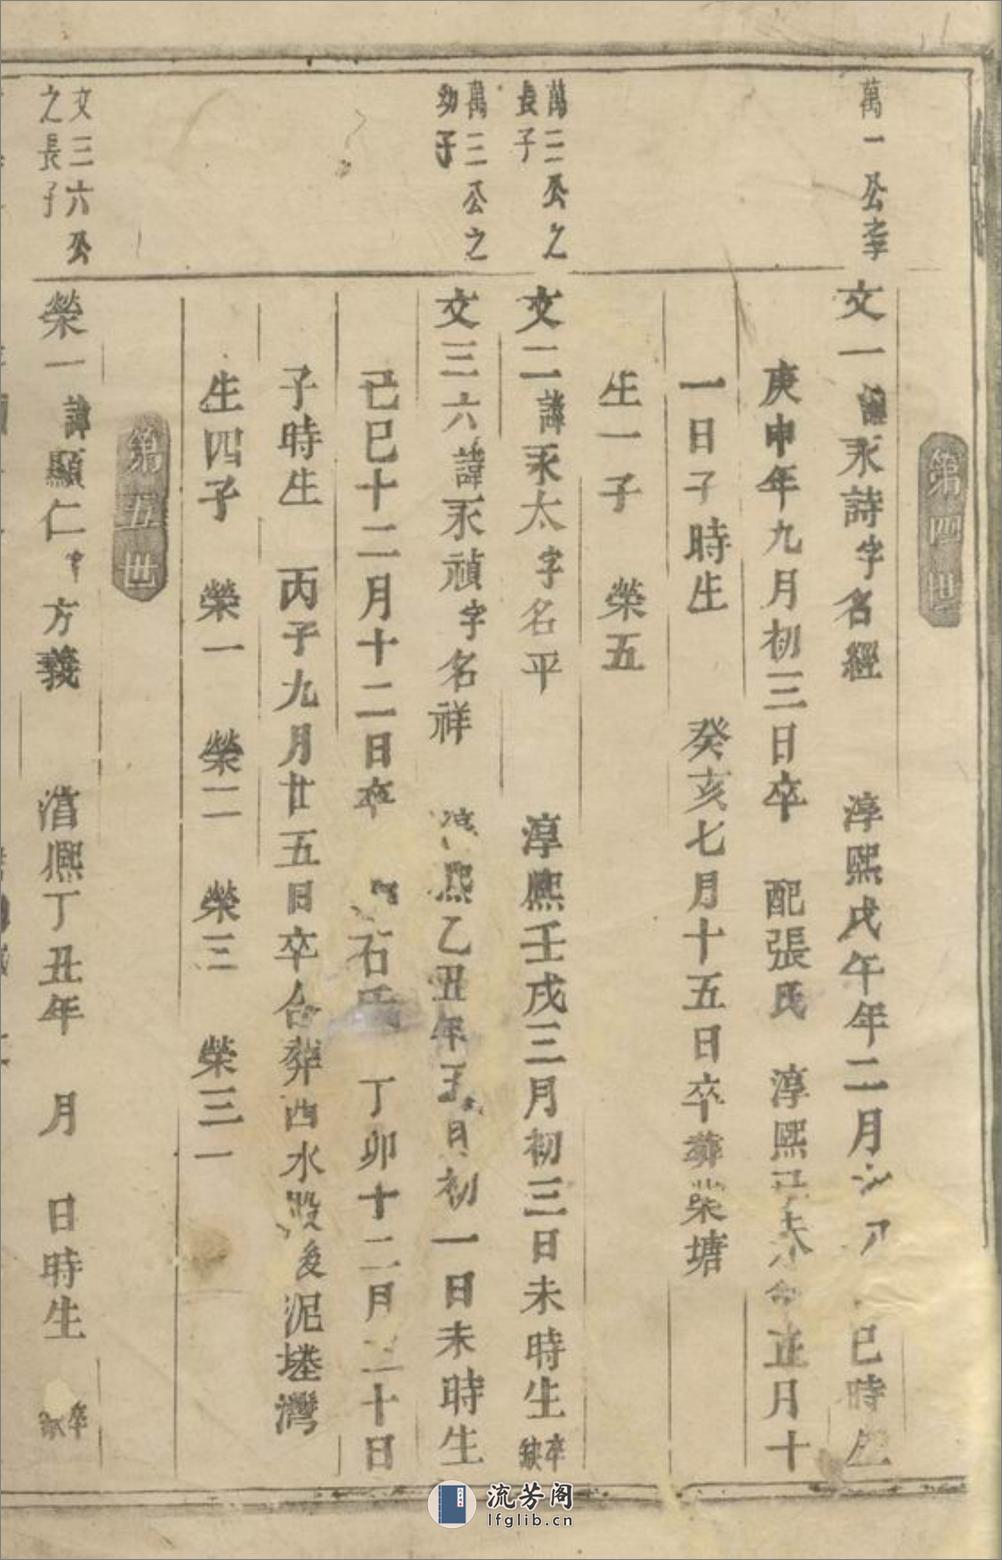 第四世
萬一公李
文一諱永詩字名經 淳熙戊午年二月 巳時生
庚申年九月初三日卒 配張氏 淳熙 未 正月十
一日子時生 癸亥七月十五日卒葬柴塘
生一子 榮五
萬二公之
長子
文二諱永太字名平 淳熙壬戌三月初三日未時生卒缺
萬三公之
幼子
文三六諱永禎字名祥 熙乙丑年 月初一日未時生
己巳十二月十二日卒 石氏 丁卯十二月二十日
子時生 丙子九月廿五日卒合葬西水 後泥塘灣
生四子 榮一 榮二 榮三 榮三一
第五世
文三六公
之長子
榮一諱顯仁字方義 熙丁丑年 月 日時生 卒
流芳阁
lfglib.cn